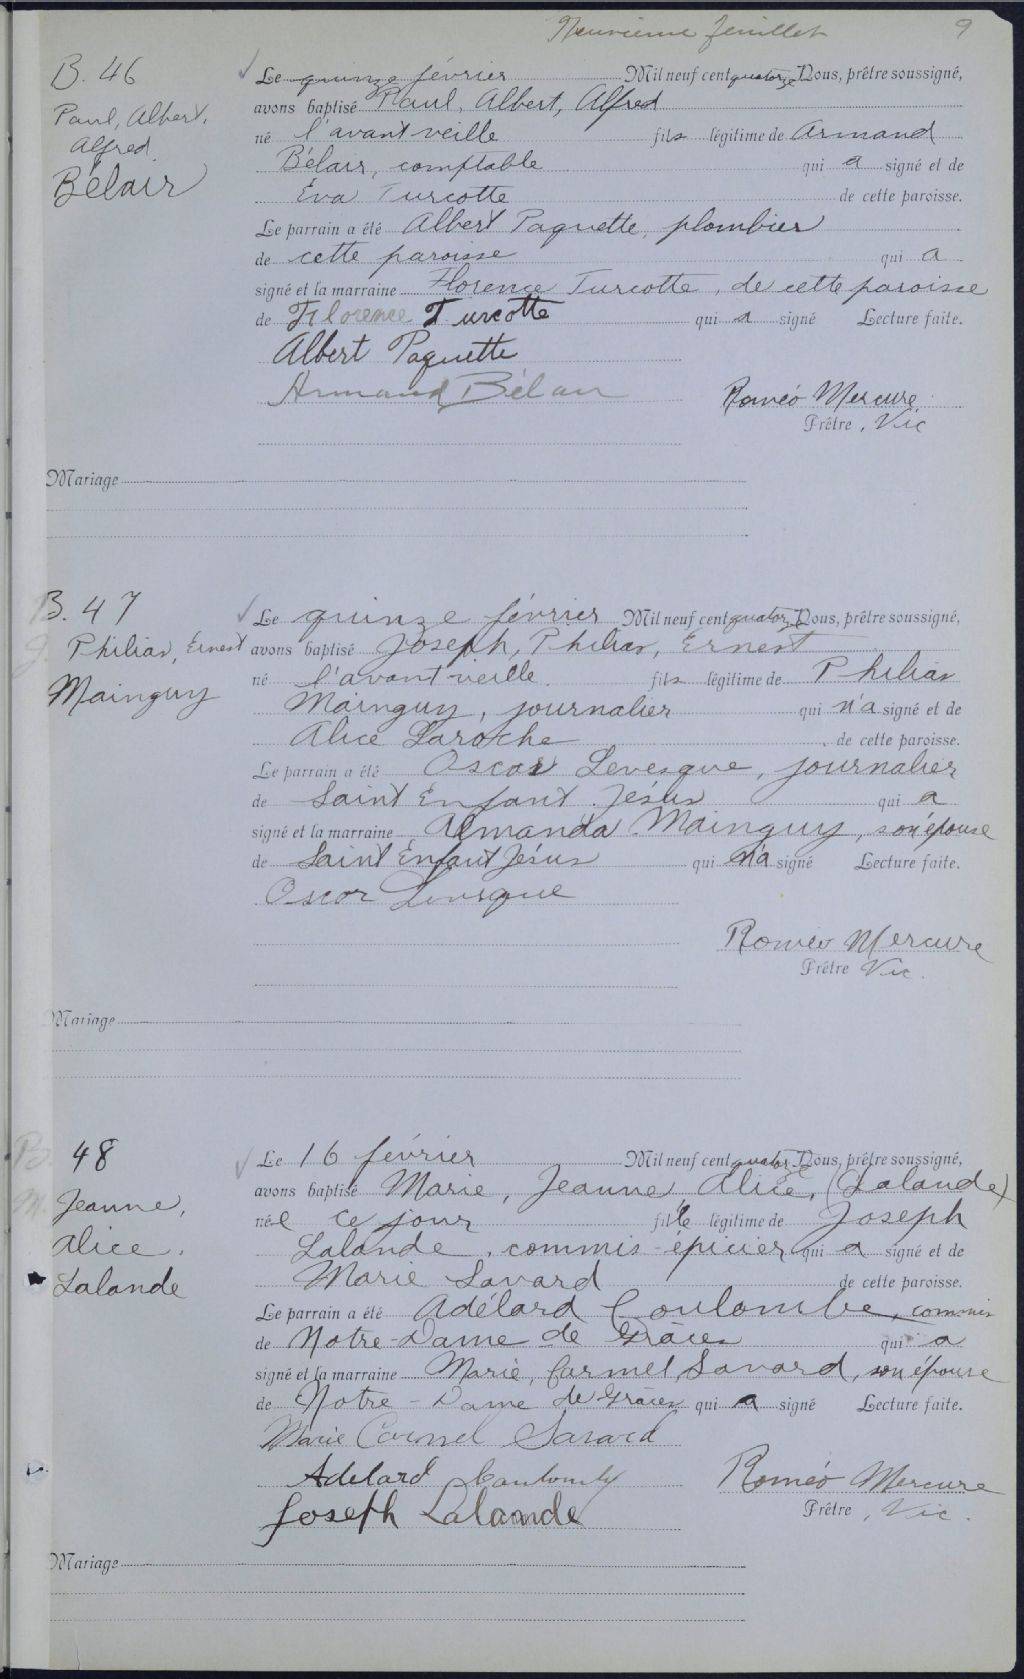 Neuvieme feuillet 9
B. 46
Paul, Albert,
Alfred
Bélair
Le quinze février Mil neuf cent quatorze Nous, prêtre soussigné,
avons baptisé Paul, Albert, Alfred
né l'avant veille fils légitime de Armand
Bélair, comptable qui a signé et de
Éva Turcotte de cette paroisse.
Le parrain a été Albert Paquette, plombier
de cette paroisse qui a
signé et la marraine Florence Turcotte, de cette paroisse
de Florence Turcotte qui a signé Lecture faite.
Albert Paquette
Armand Bélair
Roméo Mercure
Prêtre, Vic
Mariage
B. 47
Philias, Ernest
Mainguy
Le quinze février Mil neuf cent quatorze Nous, prêtre soussigné,
avons baptisé Joseph, Philias, Ernest
né l'avant veille fils légitime de Philias
Mainguy, journalier qui n'a signé et de
Alice Laroche de cette paroisse.
Le parrain a été Oscar Levesque, journalier
de Saint Enfant Jésus qui a
signé et la marraine Almanda Mainguy, son épouse
de Saint Enfant Jésus qui n'a signé Lecture faite.
Oscar Levesque
Roméo Mercure
Prêtre Vic.
Mariage
B. 48
Jeanne,
Alice,
Lalande
Le 16 février Mil neuf cent quatorze Nous, prêtre soussigné,
avons baptisé Marie, Jeanne Alice, (Lalande)
née ce jour fille légitime de Joseph
Lalande, commis-épicier qui a signé et de
Marie Savard de cette paroisse.
Le parrain a été Adélard Coulombe, commis
de Notre-Dame de Grâces qui a
signé et la marraine Marie, Carmel Savard, son épouse
de Notre-Dame de Grâces qui a signé Lecture faite.
Marie Carmel Savard
Adelard Coulombe
Joseph Lalande
Roméo Mercure
Prêtre, Vic.
Mariage